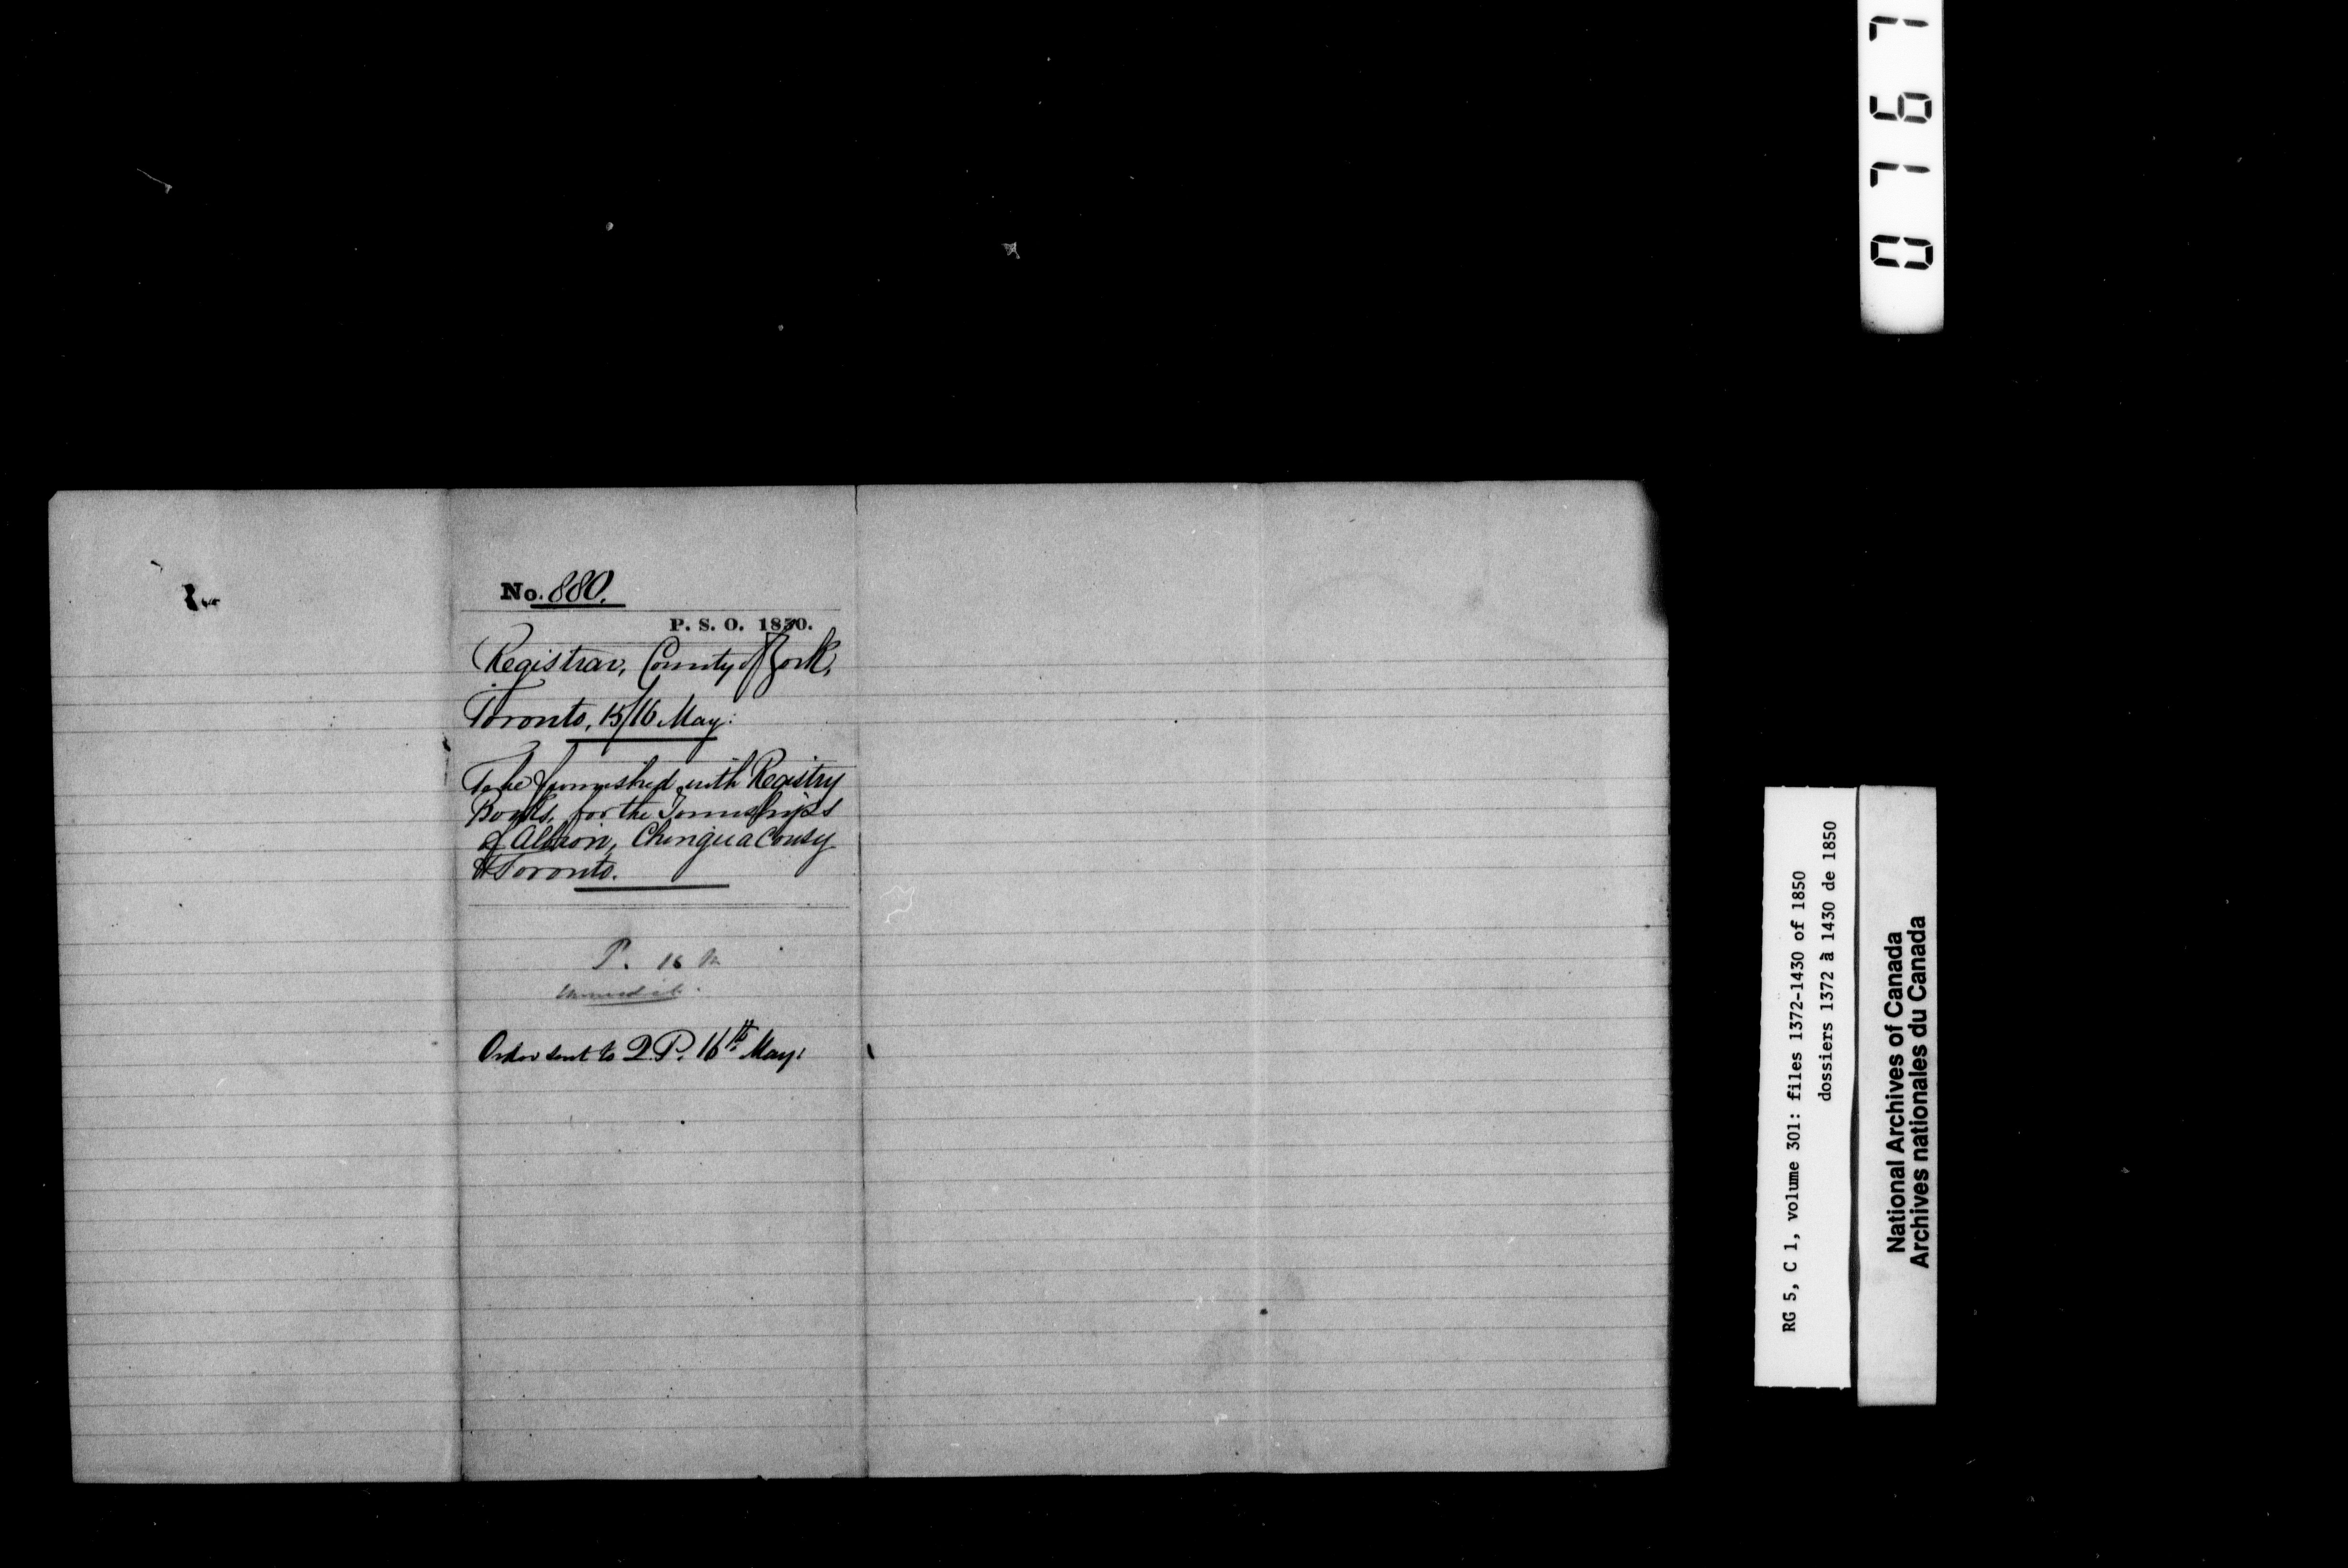 No. 880.
P. S. O. 1850.
Registrar, County of York,
Toronto, 15/16 May:
To be furnished with Registry
Books, for the Townships
of Albion, Chinguacousy
& Toronto.
P. 16 M
Immediate.
Order sent to Q.P. 16th May:
0767
RG 5, C 1, volume 301: files 1372-1430 of 1850
dossiers 1372 à 1430 de 1850
National Archives of Canada
Archives nationales du Canada